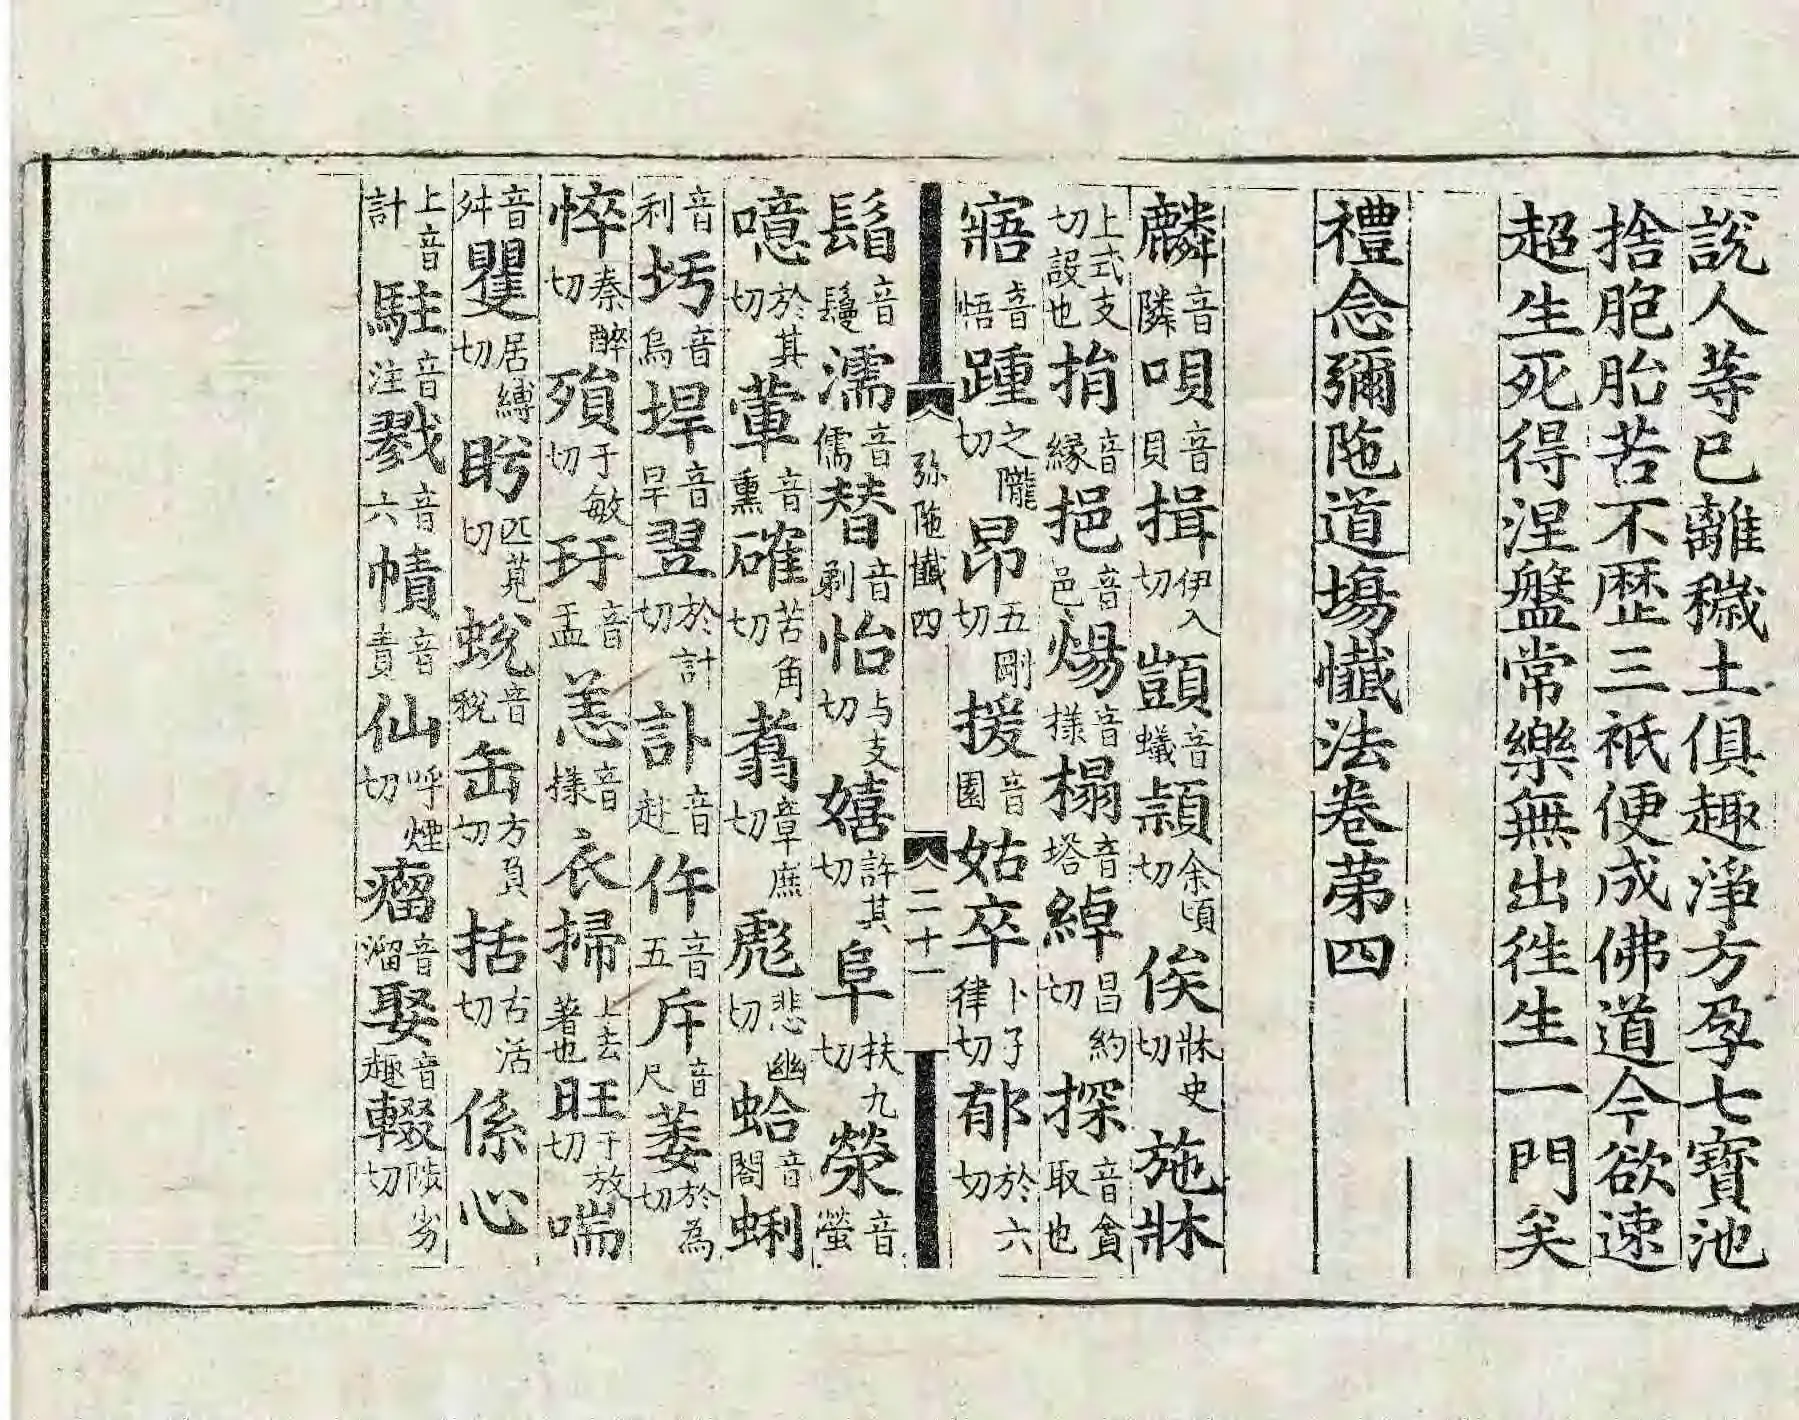 說人等已離穢土俱趣淨方孕七寶池
捨胞胎苦不歷三祇便成佛道今欲速
超生死得涅盤常樂無出徃生一門矣
禮念彌陁道塲懺法卷苐四
麟音隣唄音貝揖伊入切顗音蟻潁余頃切俟牀史切施牀
上式支切設也捐音緣挹音邑煬音様榻音塔綽昌約切探音貪取也
寤音悟踵之隴切昂五剛切援音園姑卒卜子律切郁於六切
弥陁懺四 二十一
髾音鬘濡音儒替音剃怡与支切嬉許其切阜扶九切滎音螢
噫於其切葷音熏確苦角切翥章庶切彪悲幽切蛤音閤蜊
音利圬音烏捍音旱翌於計切訃音赴仵音五斥音尺萎於為切
悴秦醉切殞于敏切玗音盂恙音様衣掃上去著也旺于放切喘
音舛矍居縛切盻匹莧切蛻音稅缶方負切括古活切係心
上音計駐音注戮音六幘音責仙呼煙切瘤音溜娶音趣輟陟劣切